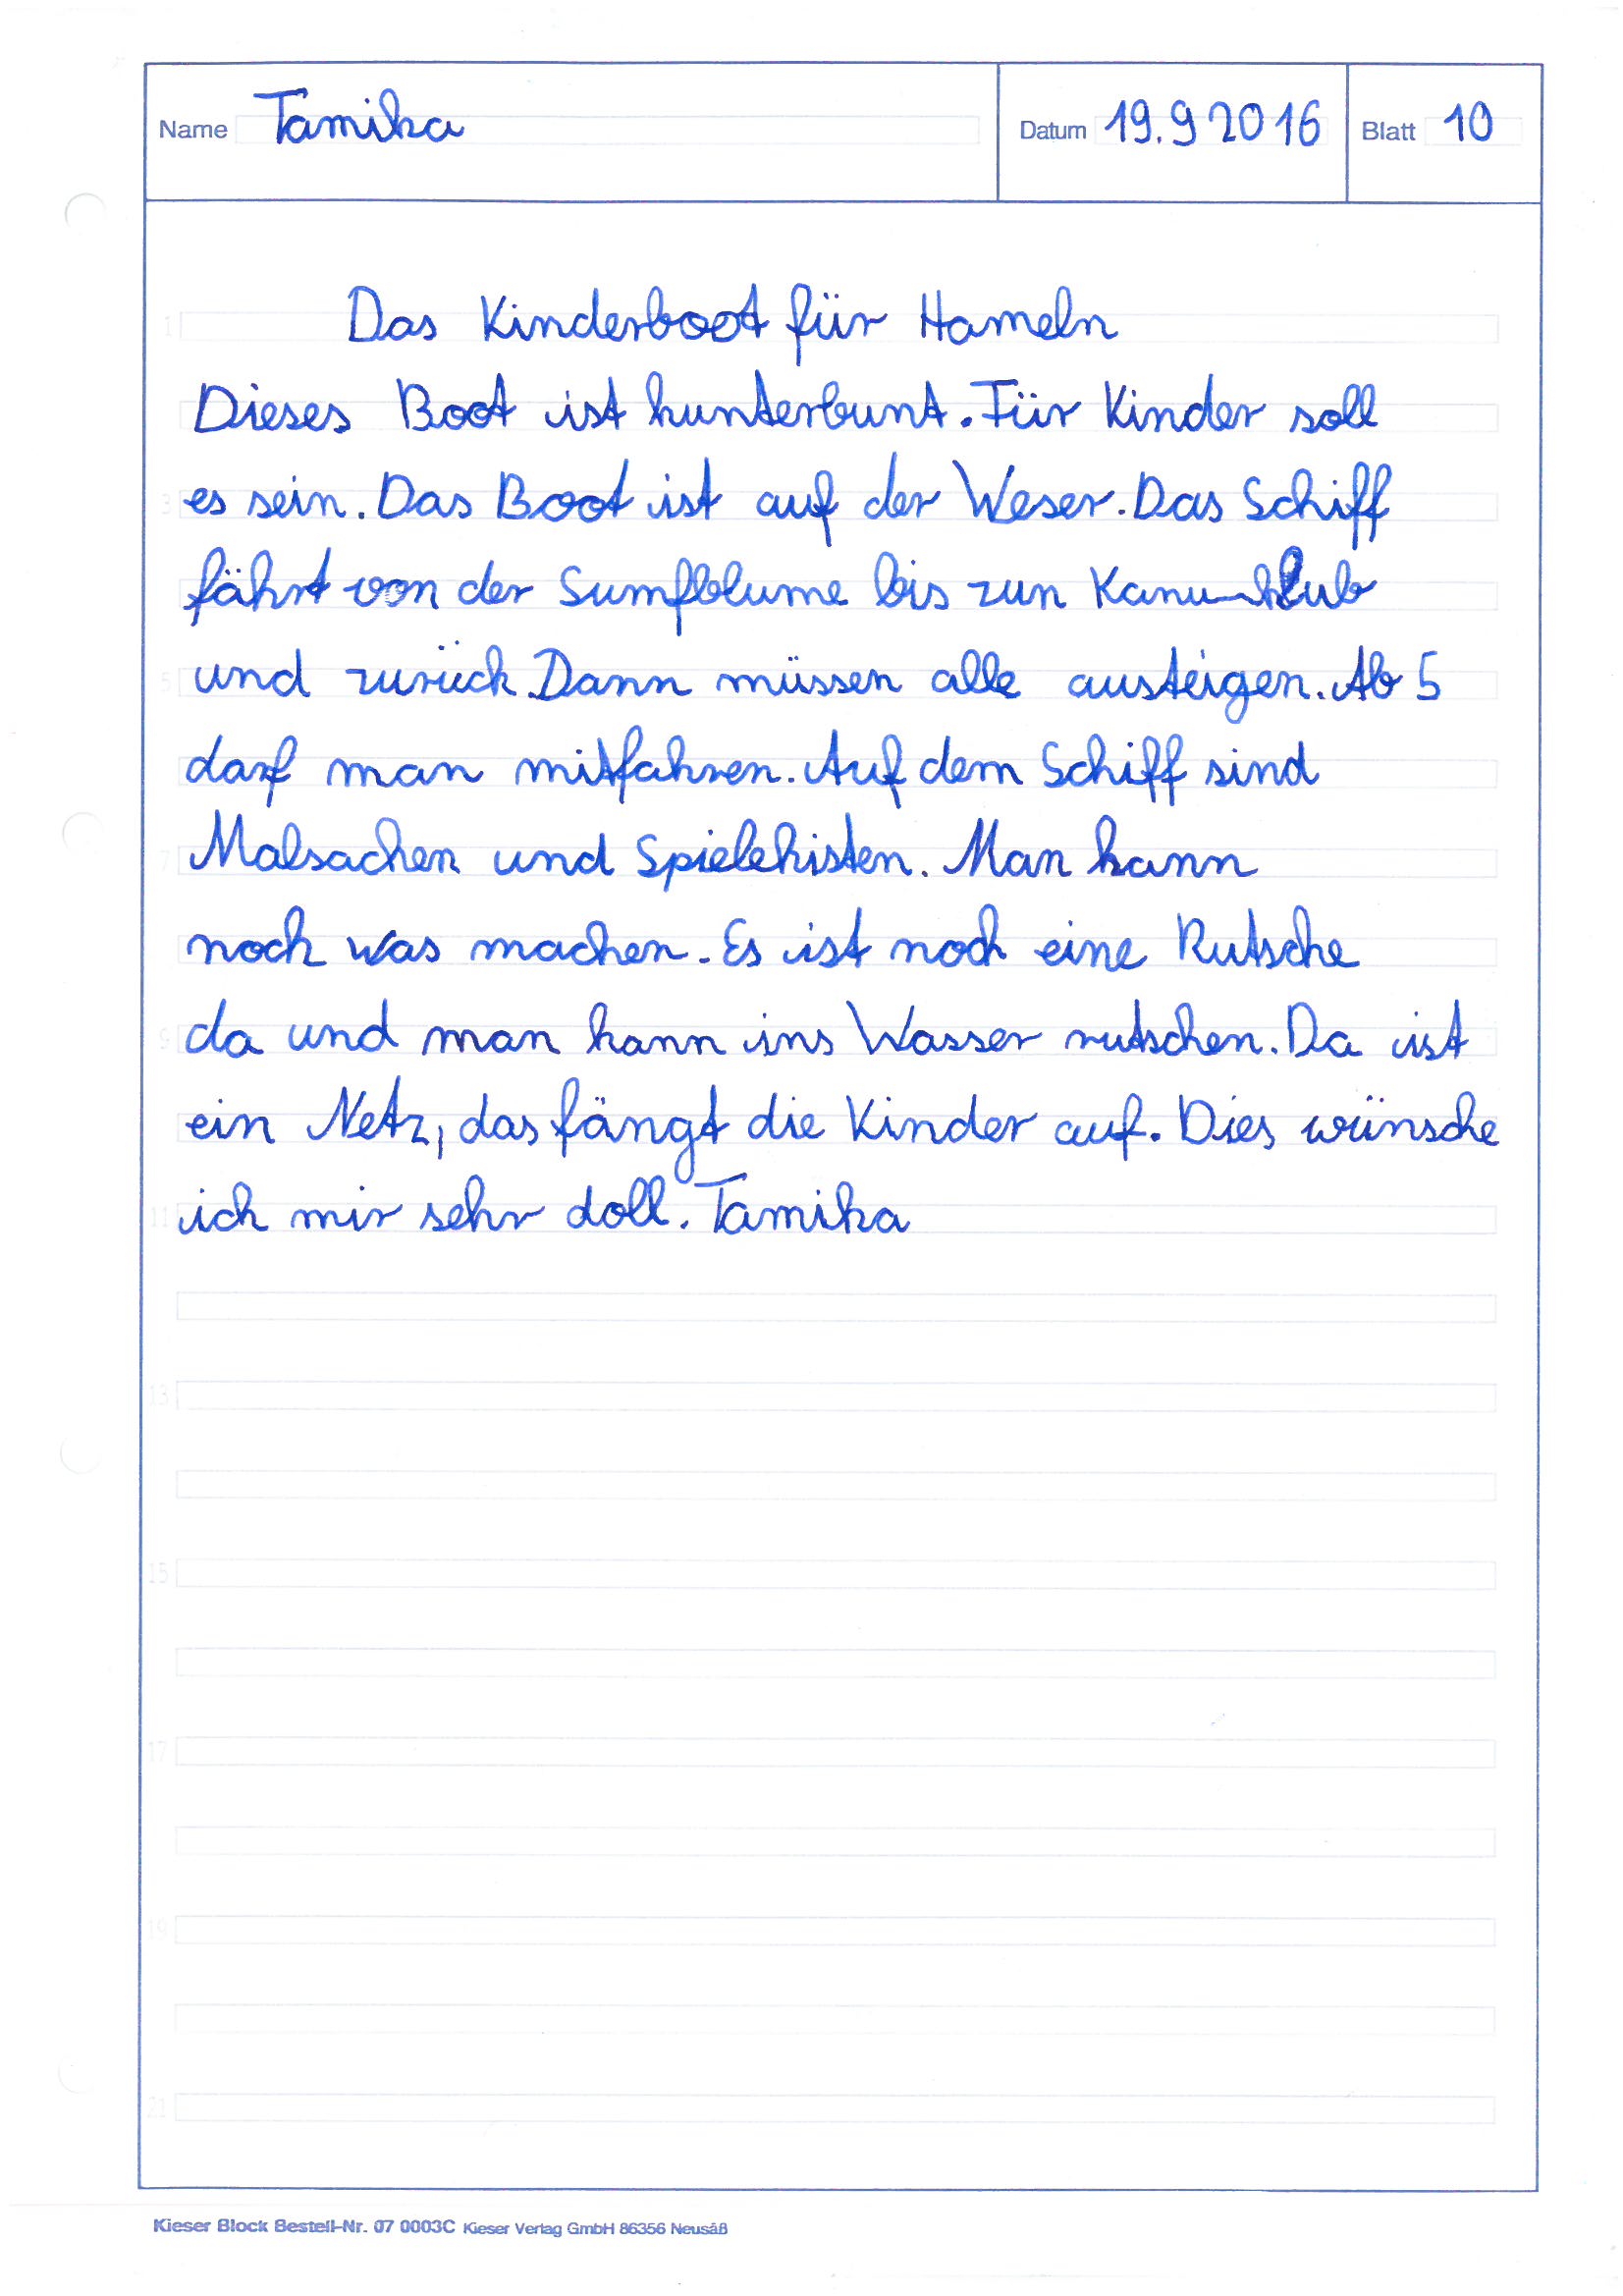 Name Tamika Datum 19.9 2016 Blatt 10
Das Kinderboot für Hameln
1
Dieses Boot ist kunterbunt. Für Kinder soll
3 es sein. Das Boot ist auf der Weser. Das Schiff
fährt von der Sumfblume bis zun Kanu-klub
5 und zurück. Dann müssen alle austeigen. Ab 5
darf man mitfahren. Auf dem Schiff sind
7 Malsachen und Spielekisten. Man kann
noch was machen. Es ist noch eine Rutsche
9 da und man kann ins Wasser rutschen. Da ist
ein Netz, das fängt die Kinder auf. Dies wünsche
11 ich mir sehr doll. Tamika
13
15
17
19
21
Kieser Block Bestell-Nr. 07 0003C Kieser Verlag GmbH 86356 Neusäß